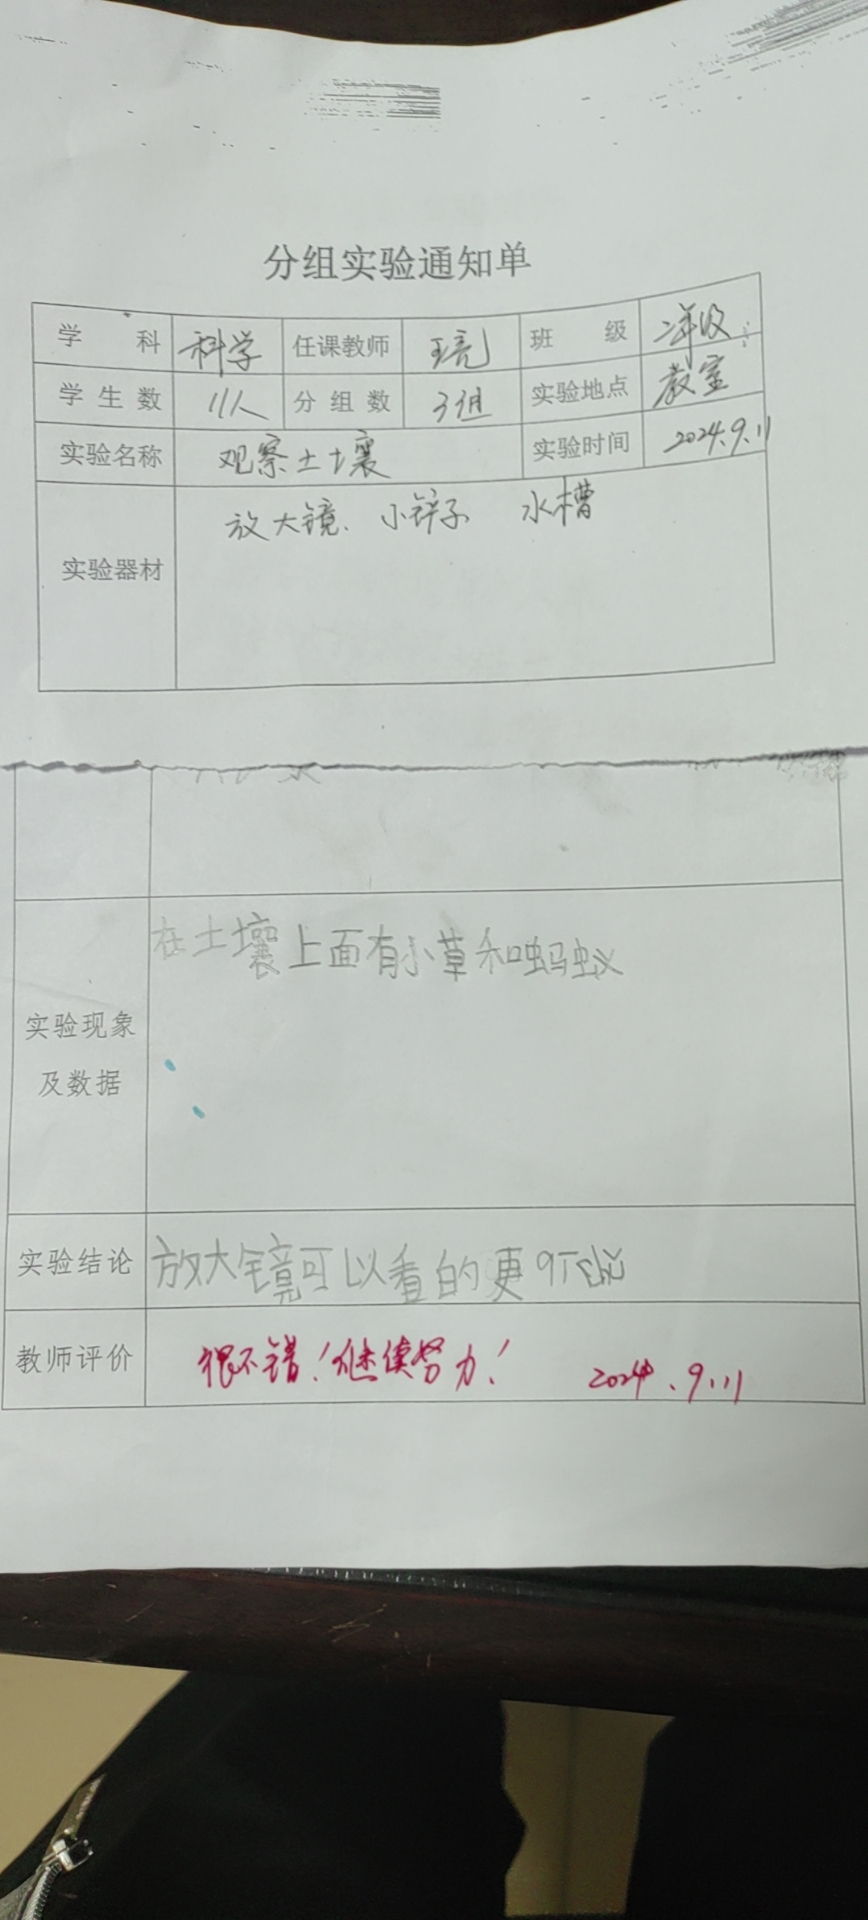 分组实验通知单
学 科 科学 任课教师 王亮 班 级 二年级
学生数 11人 分组数 3组 实验地点 教室
实验名称 观察土壤 实验时间 2024.9.11
实验器材 放大镜、小锌子 水槽
在土壤上面有小草和蚂蚁
实验现象
及数据
实验结论 放大镜可以看的更
教师评价 很不错！继续努力！ 2024.9.11